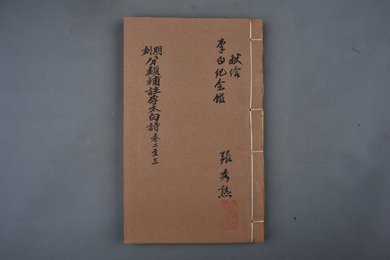 献给
李白纪念館
張秀熟
明刻分類補註李太白詩卷二至三